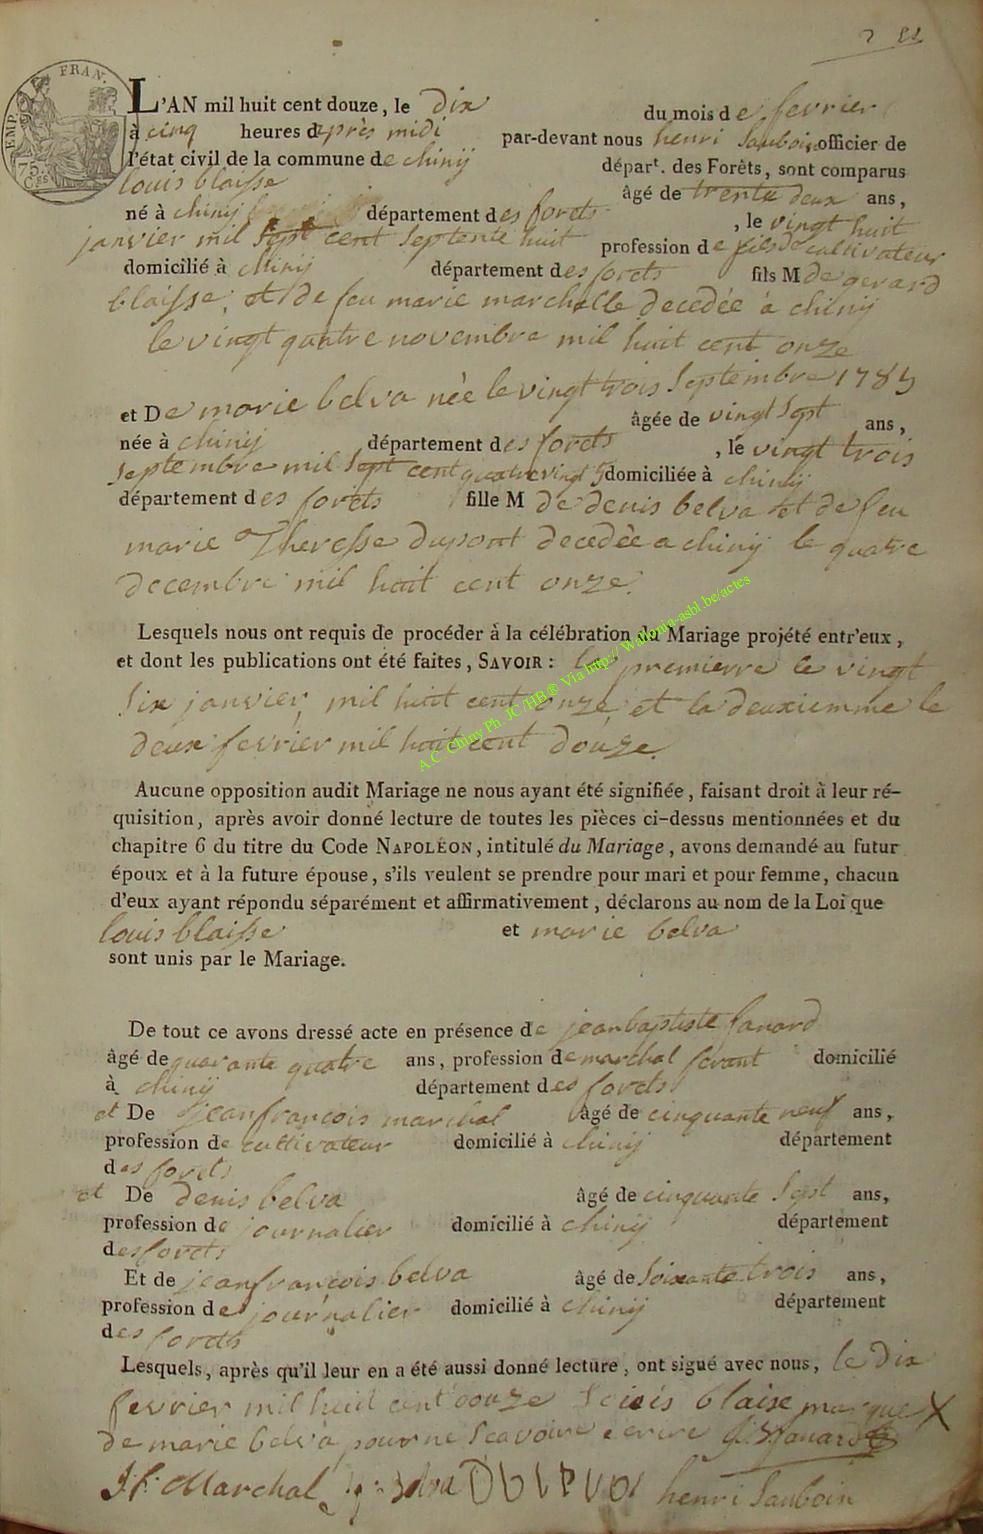 22
EMP. FRAN.
75 C.es
L'AN mil huit cent douze, le dix du mois de fevrier
à cinq heures dapres midi par-devant nous henri Sauboin officier de
l'état civil de la commune de chinij départ. des Forêts, sont comparus
louis blaisse âgé de trente deux ans,
né à chinij département des forets, le vingt huit
janvier mil sept cent septente huit profession de fils de cultivateur
domicilié à chinij département des forets fils M de gerard
blaisse, et de feu marie marchalle decedée à chinij
le vingt quattre novembre mil huit cent onze
et De marie belva née le vingt trois septembre 1785
âgée de vingt sept ans,
née à chinij département des forets, le vingt trois
septembre mil sept cent quatre vingt 5 domiciliée à chinij
département des forets fille M de denis belva et de feu
marie Theresse dupont decedèe a chinij le quatre
decembre mil huit cent onze.
Lesquels nous ont requis de procéder à la célébration du Mariage projété entr'eux,
et dont les publications ont été faites, SAVOIR : la premierre le vingt
six janvier mil huit cent onze et la deuxiemme le
deux fevrier mil huit cent douze.
A.C. Chiny Ph. JC /HB® Via http:// Wallonia-asbl.be/actes
Aucune opposition audit Mariage ne nous ayant été signifiée, faisant droit à leur ré-
quisition, après avoir donné lecture de toutes les pièces ci-dessus mentionnées et du
chapitre 6 du titre du Code NAPOLÉON, intitulé du Mariage, avons demandé au futur
époux et à la future épouse, s'ils veulent se prendre pour mari et pour femme, chacun
d'eux ayant répondu séparément et affirmativement, déclarons au nom de la Loi que
louis blaisse et marie belva
sont unis par le Mariage.
De tout ce avons dressé acte en présence de jeanbaptiste fanard
âgé de quarante quatre ans, profession de marchal ferant domicilié
à chinij département des forets
et De jeanfrancois marchal âgé de cinquante neuf ans,
profession de cultivateur domicilié à chinij département
des forets
et De denis belva âgé de cinquante sept ans,
profession de journalier domicilié à chinij département
des forets
Et de jeanfrancois belva âgé de soixante trois ans,
profession de journalier domicilié à chinij département
des forets
Lesquels, après qu'il leur en a été aussi donné lecture, ont signé avec nous, le dix
fevrier mil huit cent douze louis blaise marque X
de marie belva pour ne scavoire ecrire J B fanard
J f Marchal belva D b l v a henri Sauboin